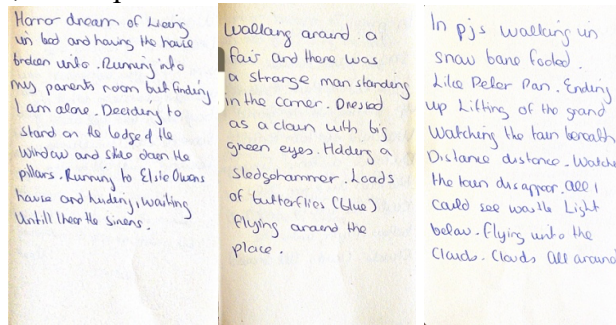 Horror dream of Lieing
in bed and having the house
broken into. Running into
my parents room but finding
I am alone. Deciding to
stand on the ledge of the
window and slide down the
pillars. Running to Elsie Owens
house and hiding, waiting
Untill I hear the sirens.
Walking around a
fair and there was
a strange man standing
in the corner. Dressed
as a clown with big
green eyes. Holding a
sledgehammer. Loads
of butterflies (blue)
flying around the
place.
In pjs walking in
snow bare footed.
Like Peter Pan. Ending
up Lifting of the grand
Watching the town beneath
Distance distance. Watche
the town disappear. All I
could see was the Light
below. flying into the
Clouds. Clouds All around